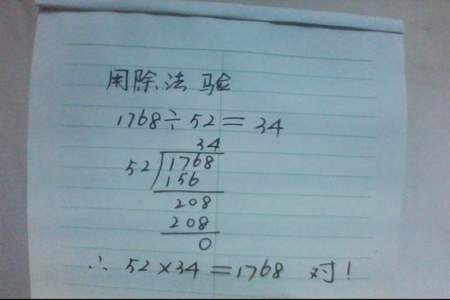 用除法验
1768÷52=34
34
52)1768
156
208
208
0
∴ 52×34=1768 对!